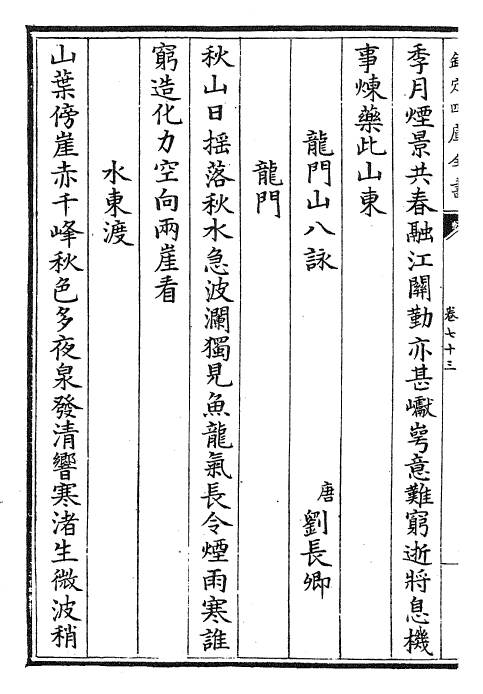 欽定四庫全書
卷七十三
季月煙景共春融江關勤亦甚巘崿意難窮逝將息機
事煉藥此山東
龍門山八詠
唐劉長卿
龍門
秋山日搖落秋水急波瀾獨見魚龍氣長令煙雨寒誰
窮造化力空向兩崖看
水東渡
山葉傍崖赤千峰秋色多夜泉發清響寒渚生微波稍